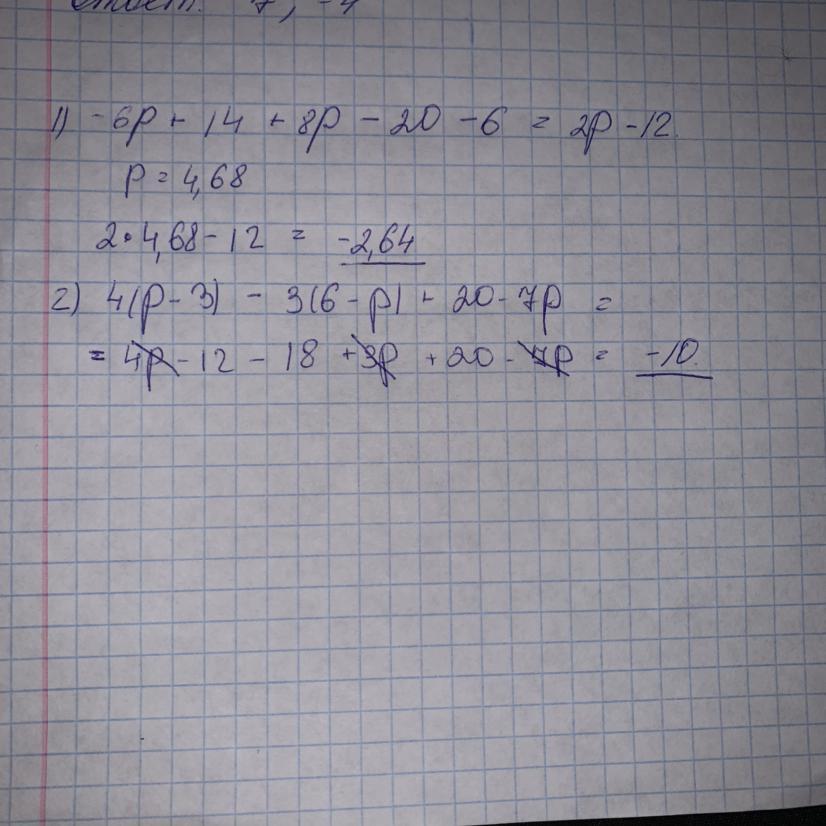 Ответ: 7; -4
1) -6p + 14 + 8p - 20 - 6 = 2p - 12.
p = 4,68
2 • 4,68 - 12 = -2,64
2) 4(p - 3) - 3(6 - p) + 20 - 7p =
= 4p - 12 - 18 + 3p + 20 - 7p = -10.